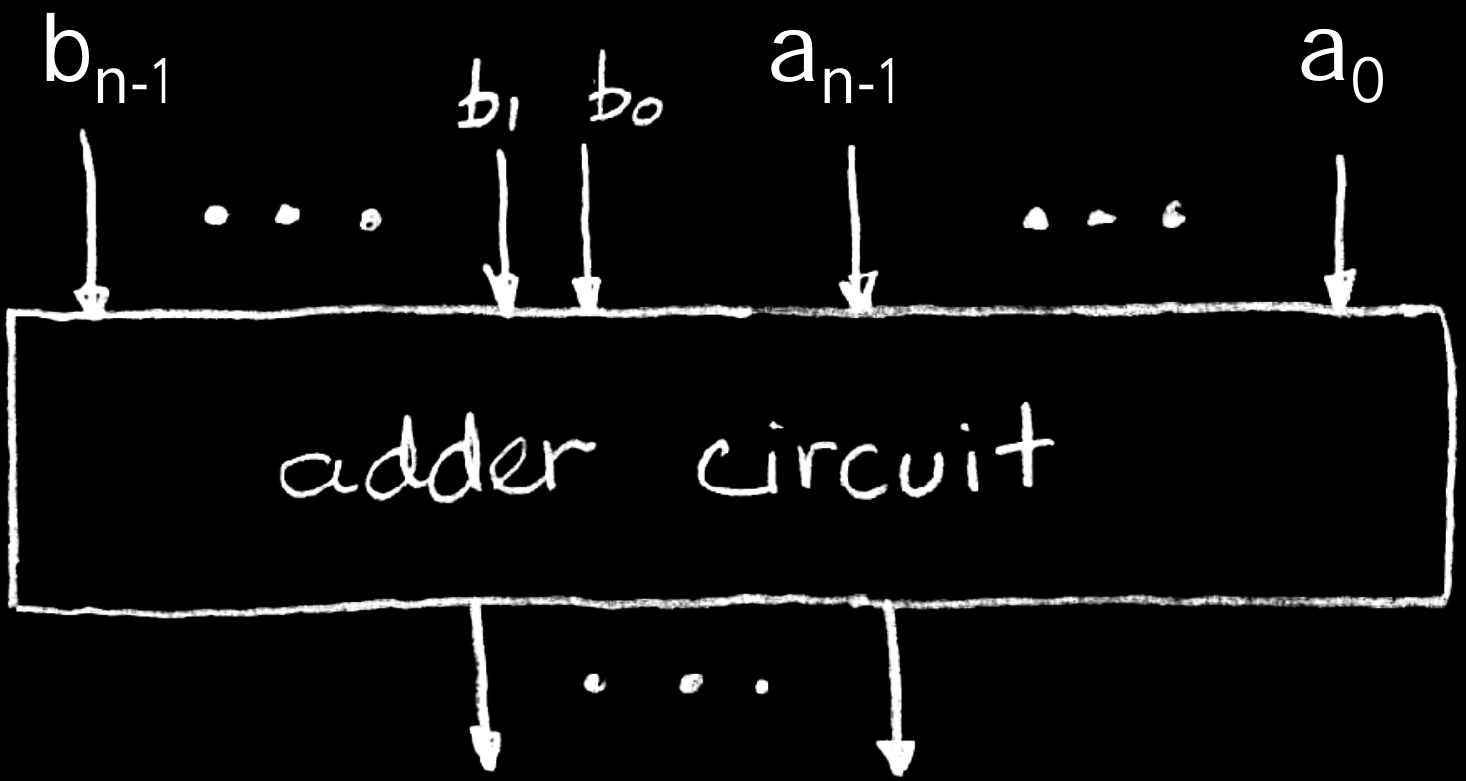 bn-1 b1 b0 an-1 a0
adder circuit